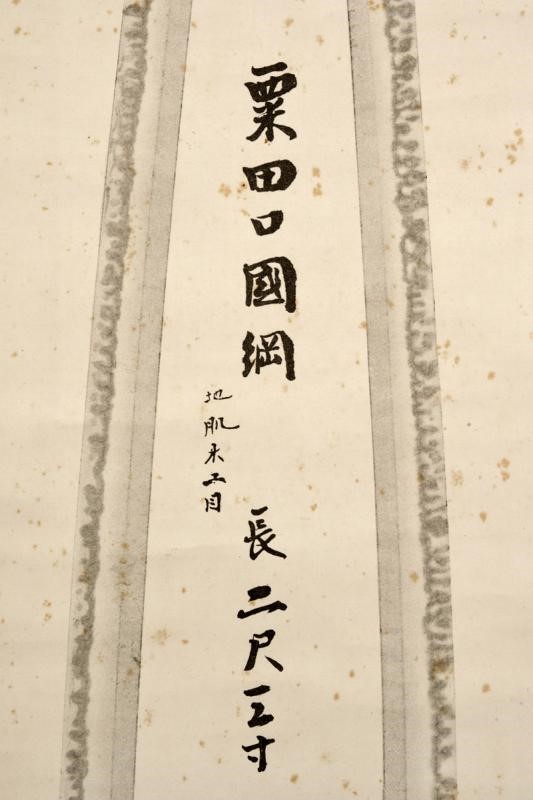 粟田口國綱
長二尺三寸
地肌木工目